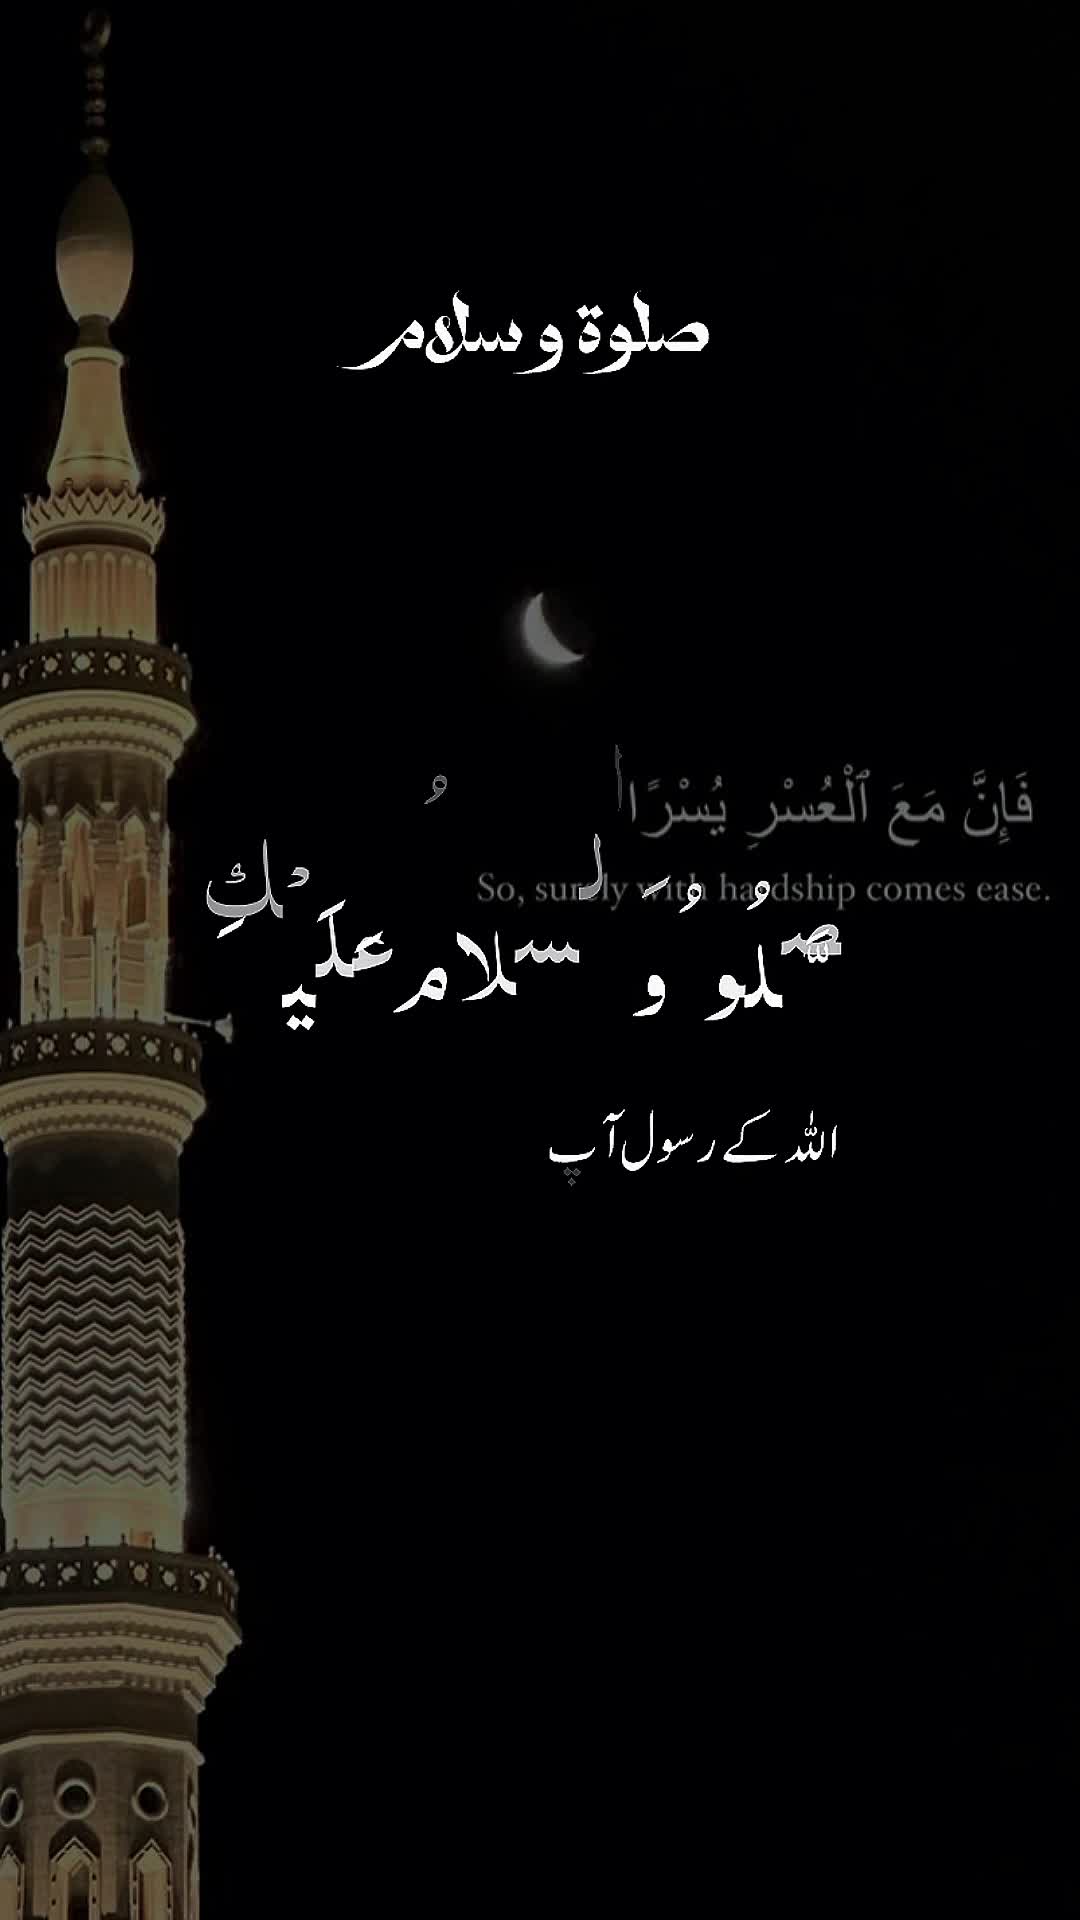 صلوۃ و سلام
فَإِنَّ مَعَ ٱلْعُسْرِ يُسْرًا
So, surely with hardship comes ease.
سلام عَلَيْكِ
اللہ کے رسول آپ